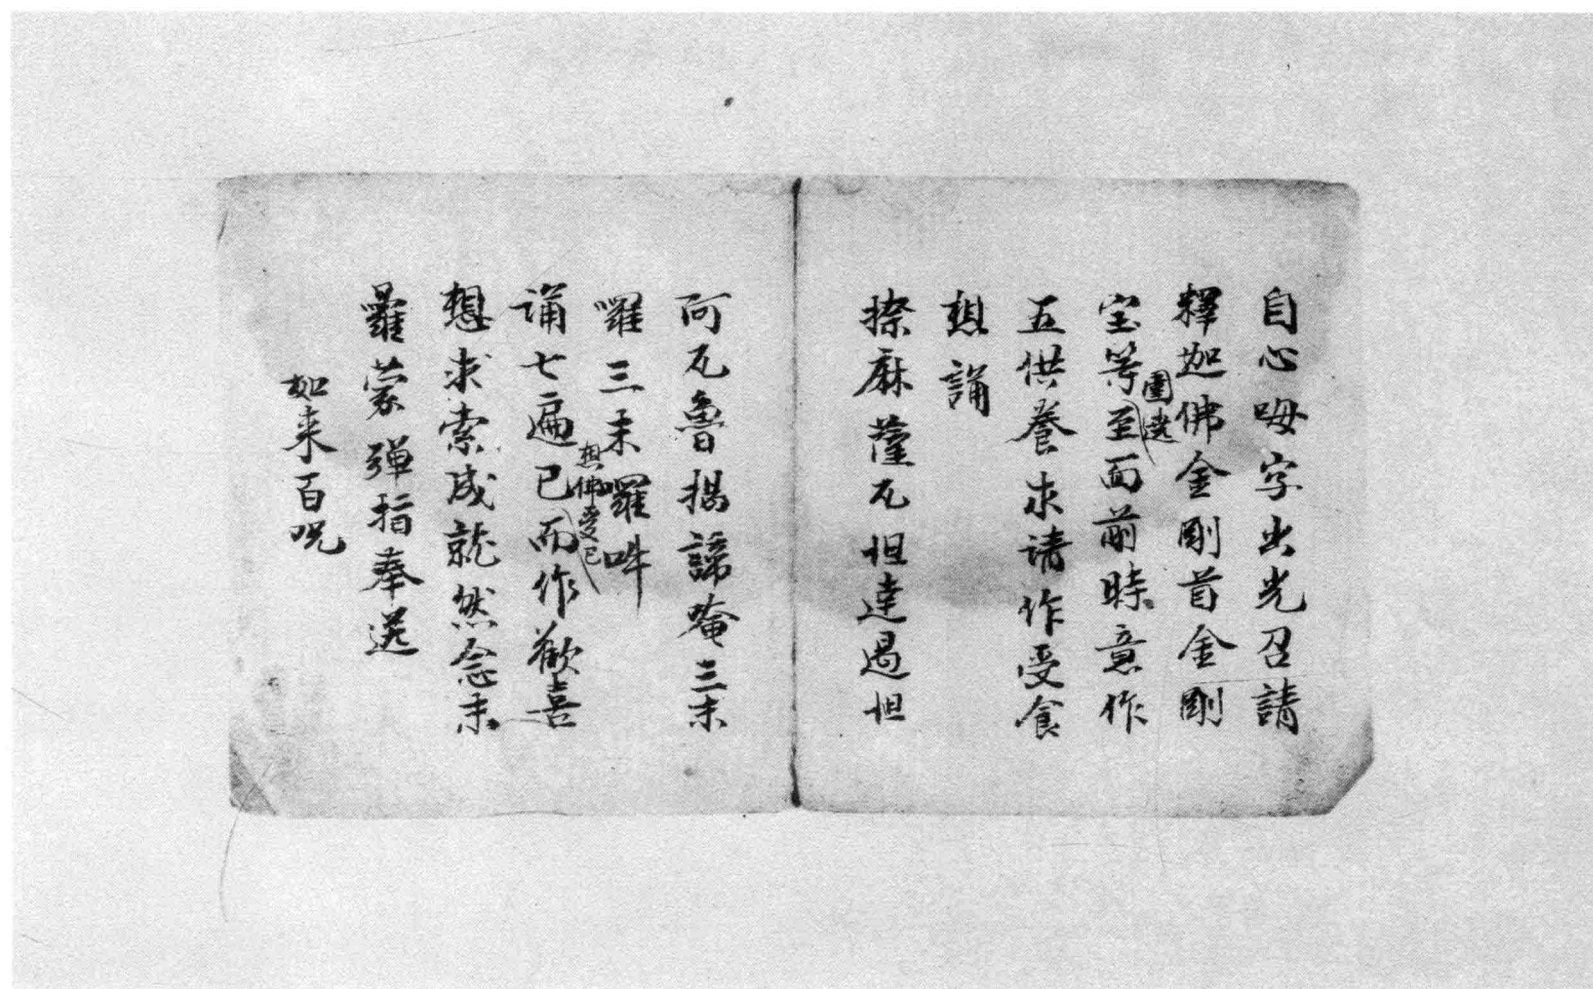 自心呣字出光召請
釋迦佛金剛首金剛
宝等圍遶至面前時意作
五供養求請作受食
想誦
捺麻薩瓦怛達遏怛
阿瓦魯揭諦唵三末
囉三末囉吽
誦七遍已想佛受已而作歡喜
想求索成就然念末
囉蒙彈指奉送
如来百咒